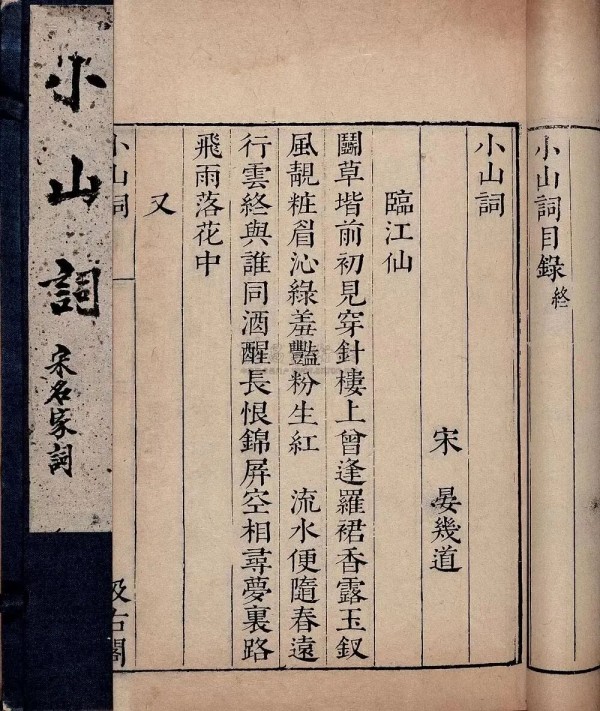 小山詞目錄終
小山詞
宋 晏幾道
臨江仙
鬭草堦前初見穿針樓上曾逢羅裙香露玉釵
風靚粧眉沁綠羞豔粉生紅 流水便隨春遠
行雲終與誰同酒醒長恨錦屏空相尋夢裏路
飛雨落花中
又
小山詞
汲古閣
小山詞
宋名家詞